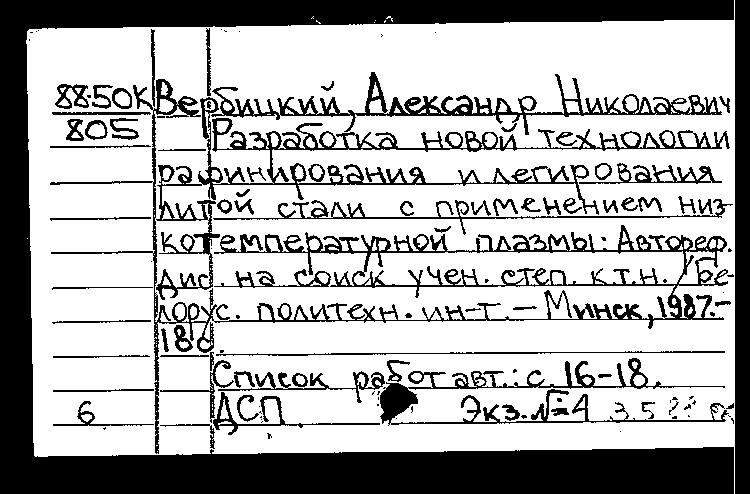 88-50К Вербицкий, Александр Николаевич
805 Разработка новой технологии
рафинирования и легирования
литой стали с применением низ-
котемпературной плазмы: Автореф.
дис. на соиск учен. степ. к.т.н. / Бе-
лорус. политехн. ин-т. - Минск, 1987.-
18с.
Список работ авт.: с. 16-18.
6 ДСП. Экз. №4